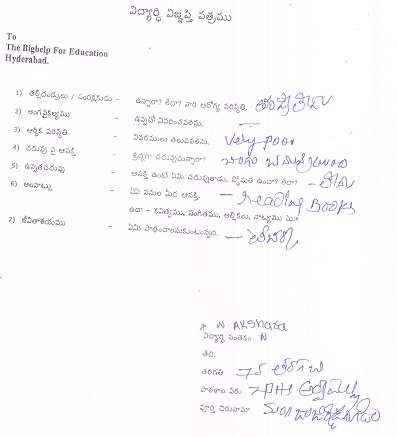 విద్యార్ధి విజ్ఞప్తి పత్రము
To
The Bighelp For Education
Hyderabad.
1) తల్లిదండ్రులు / సంరక్షకుడు - ఉన్నారా? లేరా? వారి ఆరోగ్య పరిస్థితి.
2) అంగవైకల్యము - ఉన్నచో వివరించవలెను. —
3) ఆర్థిక పరిస్థితి - వివరములు తెలుపవలెను. Very poor
4) చదువు పై ఆసక్తి - శ్రద్ధగా చదువుచున్నారా?
5) ఉన్నతచదువు - ఆసక్తి ఉంటే ఏమి చదువుతాడు, స్తోమత ఉందా? లేదా? -
6) అలవాట్లు - ఏ ఏ పనుల మీద ఆసక్తి. - reading Books
ఉదా - కవిత్వము, సంగీతము, అల్లికలు, నాట్యము
7) జీవితాశయము - ఏమి సాధించాలనుకుంటున్నది. -
N. Akshara
విద్యార్థి సంతకం N
తేది.
తరగతి 7వ తరగతి
పాఠశాల పేరు ZPHS
పూర్తి చిరునామా